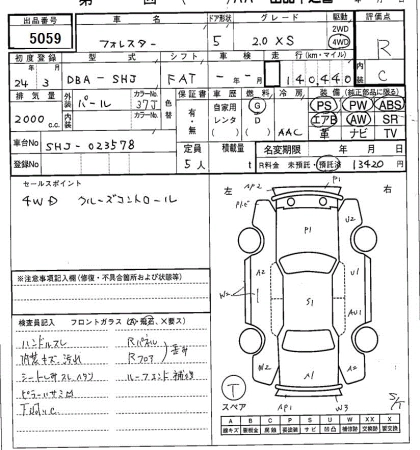 出品番号
5059
車名
フォレスター
ドア形状
5
グレード
2.0 XS
駆動
2WD
4WD
評価点
R
C
初度登録
24年 3月
型式
DBA-SHJ
シフト
FAT
車検
年 月
走行(km・マイル)
140,440
排気量
2000 c.c.
外装
パール
カラーNo.
37J
内装
カラーNo.
色替
保証書
有・無
車歴
自家用
レンタ
燃料
G
D
冷房
AAC
装備(純正部品に限る)
PS PW ABS
エアB AW SR
革 ナビ TV
車台No
SHJ-023578
登録No
定員
5人
積載量
t
名変期限 年 月 日
R料金 未預託・預託済 13420 円
セールスポイント
4WD クルーズコントロール
左
右
AP2
P1
P1
U2
A2
U1
W2
S1
AU1
W2
X2
A1
AP1
W3
S/T
※注意事項記入欄(修復・不具合箇所および状態等)
検査員記入 フロントガラス(A・飛石、X要ス)
ハンドルスレ
Rパネル
内装キズ、汚れ
Rフロア
ルーフエンド補修
T
スペア
A B C P S U W X XX
線キズ 腐蝕 要塗装 サビ 凹凸 補修跡 交換跡 要交換